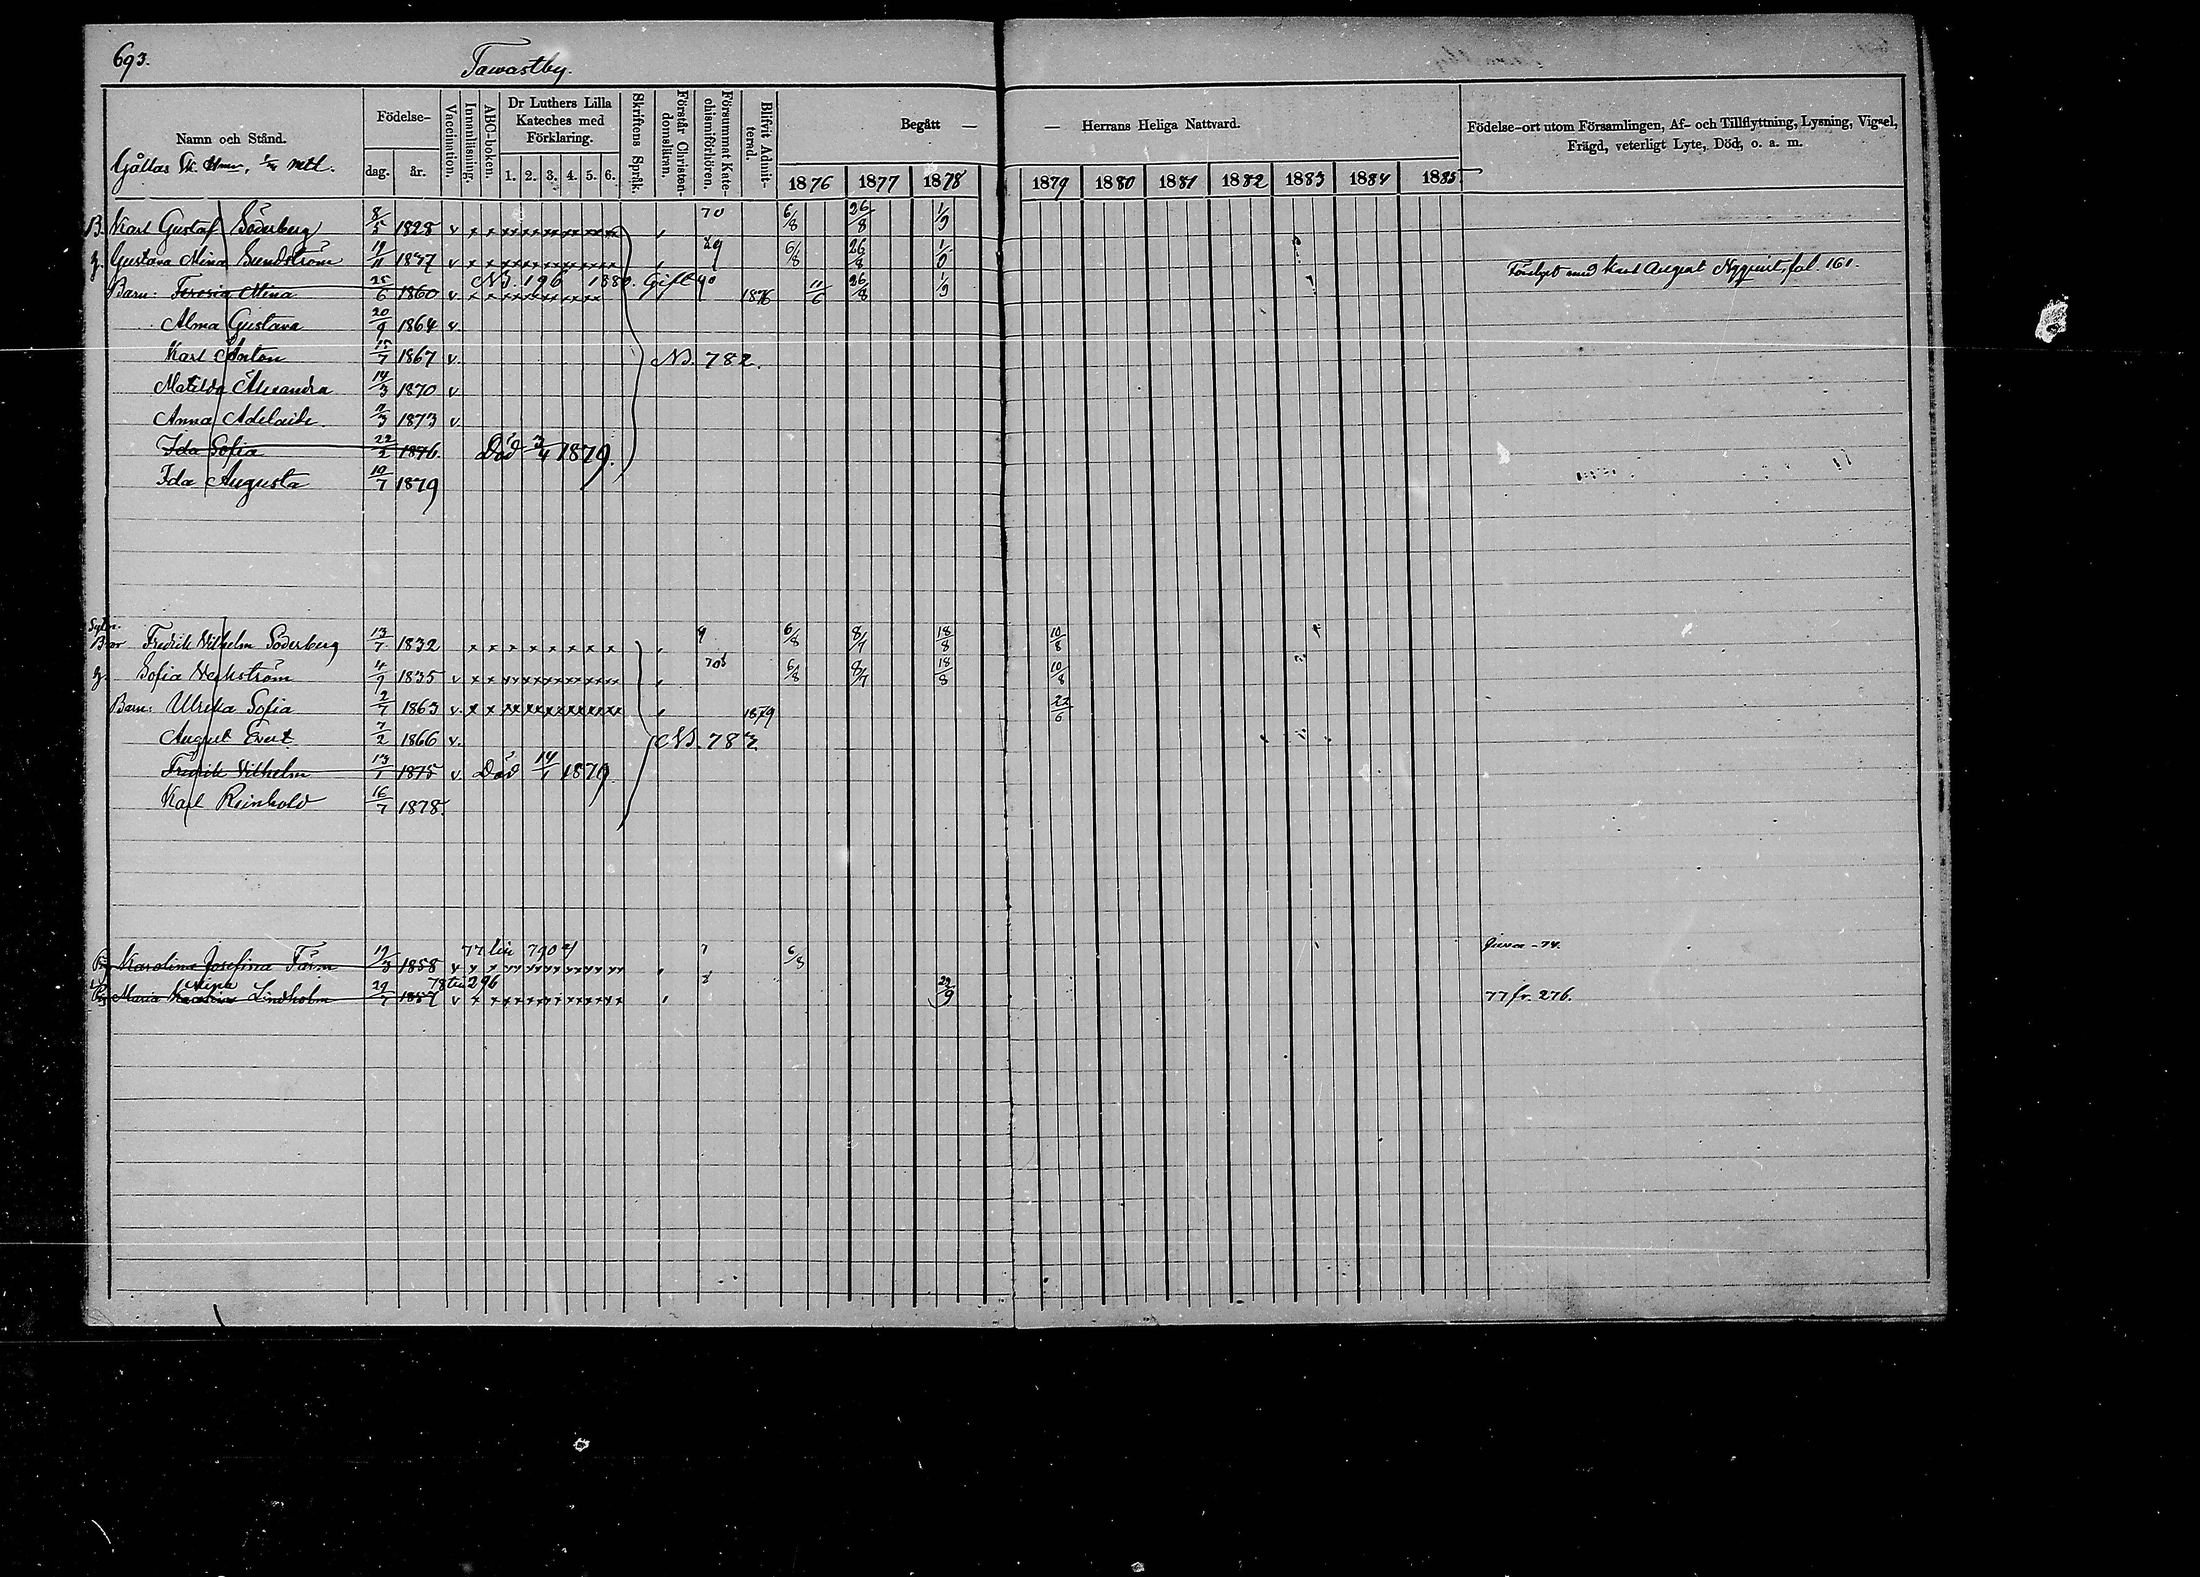 693.
Tawastby.
Namn och Stånd.
Födelse-
dag.
år.
Vaccination.
Innanläsning.
ABC-boken.
Dr Luthers Lilla
Kateches med
Förklaring.
1. 2. 3. 4. 5. 6.
Skriftens Språk.
Förstår Christen-
domsläran.
Försummat Kate-
chismiförhören.
Blifvit Admit-
terad.
Begått — — Herrans Heliga Nattvard.
1876 1877 1878 1879 1880 1881 1882 1883 1884 1885
Födelse-ort utom Församlingen, Af- och Tillflyttning, Lysning, Vigsel,
Frägd, veterligt Lyte, Död, o. a. m.
Gåttas mtl.
B. Karl Gustaf Söderberg 8/5 1828 v 70 6/8 26/8 1/9
h. Gustava Mina Sundström 19/11 1837 v 6/8 26/8 1/9
N. 196 1880. Gift
Barn: Teresia Mina 25/6 1860 v 1876 11/6 26/8 1/9 med Karl August Nyqvist, fol. 161.
Alma Gustava 20/9 1864 v.
Karl Anton 15/7 1867 v. N. 782.
Matilda Alexandra 14/3 1870 v
Anna Adelaide 11/3 1873 v.
Ida Sofia 22/2 1876. Död 3/4 1879.
Ida Augusta 19/7 1879
Sytn.
Bror Fredrik Vilhelm Söderberg 13/7 1832 9 6/8 8/7 18/8 10/8
h. Sofia Weckström 4/9 1835 v 6/8 8/7 18/8 10/8
Barn: Ulrika Sofia 2/7 1863 v. 1879 22/6
August Evert 7/2 1866 v. N. 782
Fredrik Vilhelm 13/1 1875 v Död 14/1 1879
Karl Reinhold 16/7 1878.
77 till 790
Pig. Karolina Josefina Färm 19/3 1858 v 6/8 -74.
78 till 296
Pig. Maria Lindholm 29/7 1857 v 29/9 77 fr. 276.